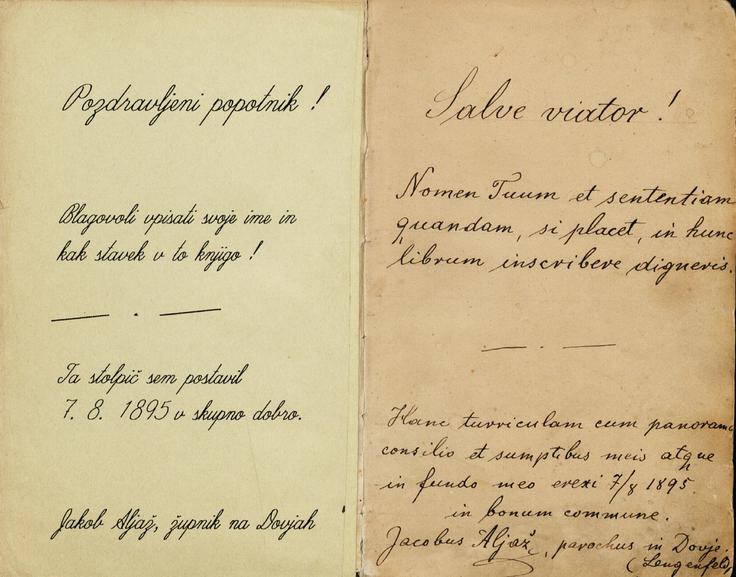 Pozdravljeni popotnik !
Blagovoli vpisati svoje ime in
kak stavek v to knjigo !
Ta stolpič sem postavil
7. 8. 1895 v skupno dobro.
Jakob Aljaž, župnik na Dovjah
Salve viator !
Nomen Tuum et sententiam
quandam, si placet, in hunc
librum inscribere digneris.
Hanc turriculam cum panorama
consilio et sumptibus meis atque
in fundo meo erexi 7/8 1895.
in bonum commune.
Jacobus Aljaž, parochus in Dovje.
(Lengenfeld)